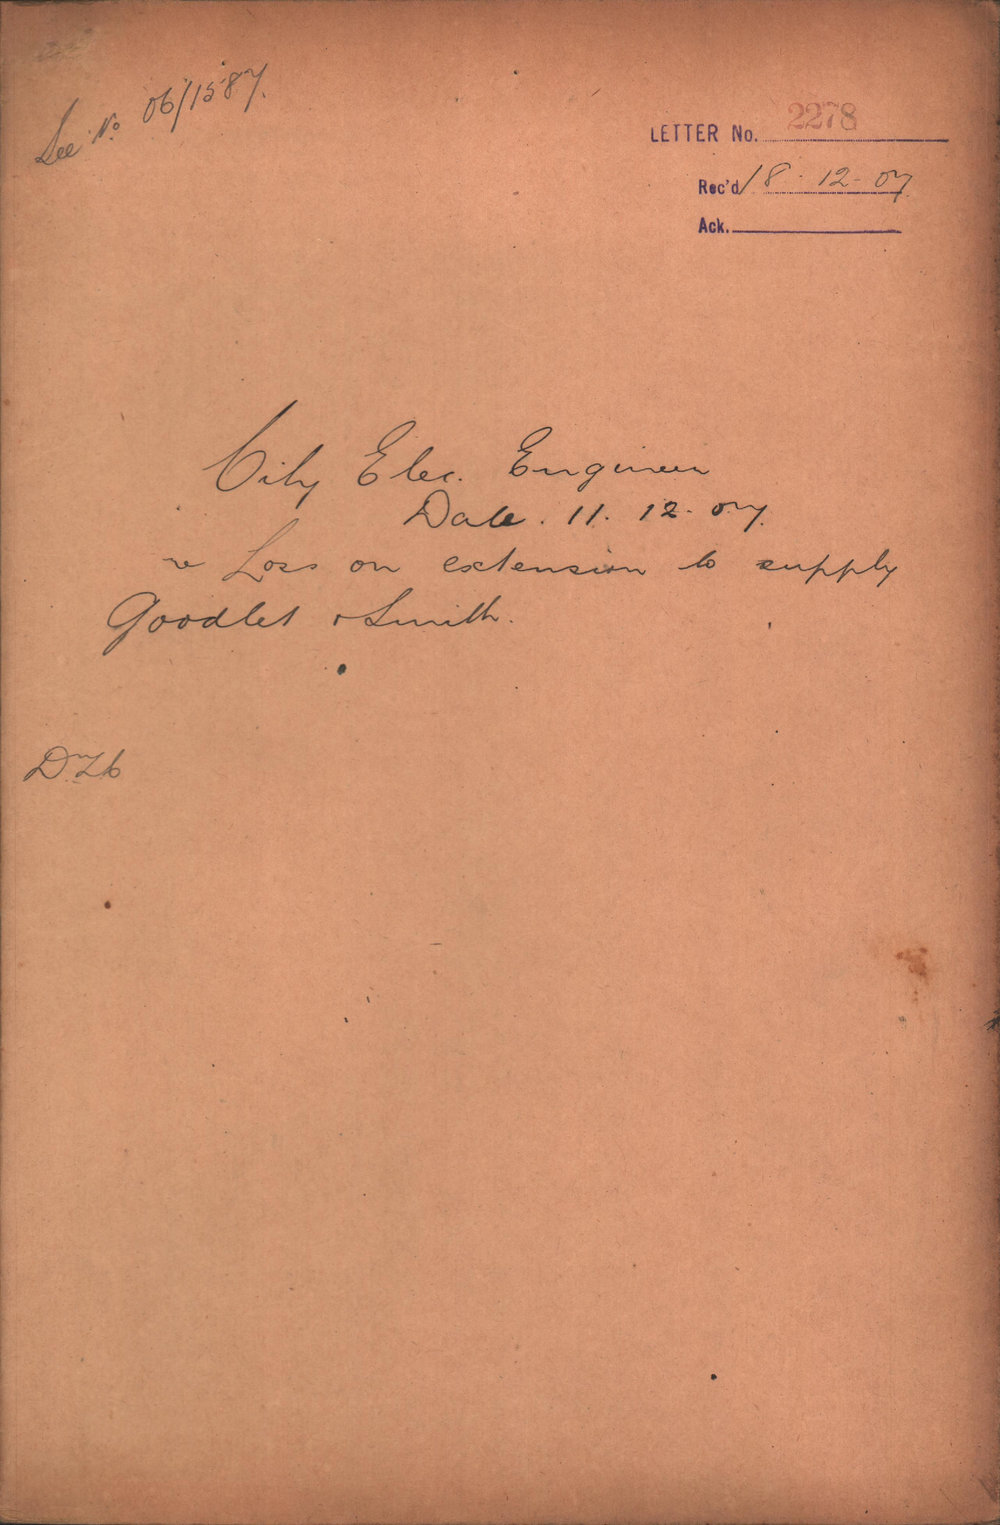 See No 06/1587.
LETTER No. 2278
Rec'd 18-12-07.
Ack.
City Elec. Engineer
Date. 11. 12. 07.
re Loss on extension to supply
Goodlet & Smith.